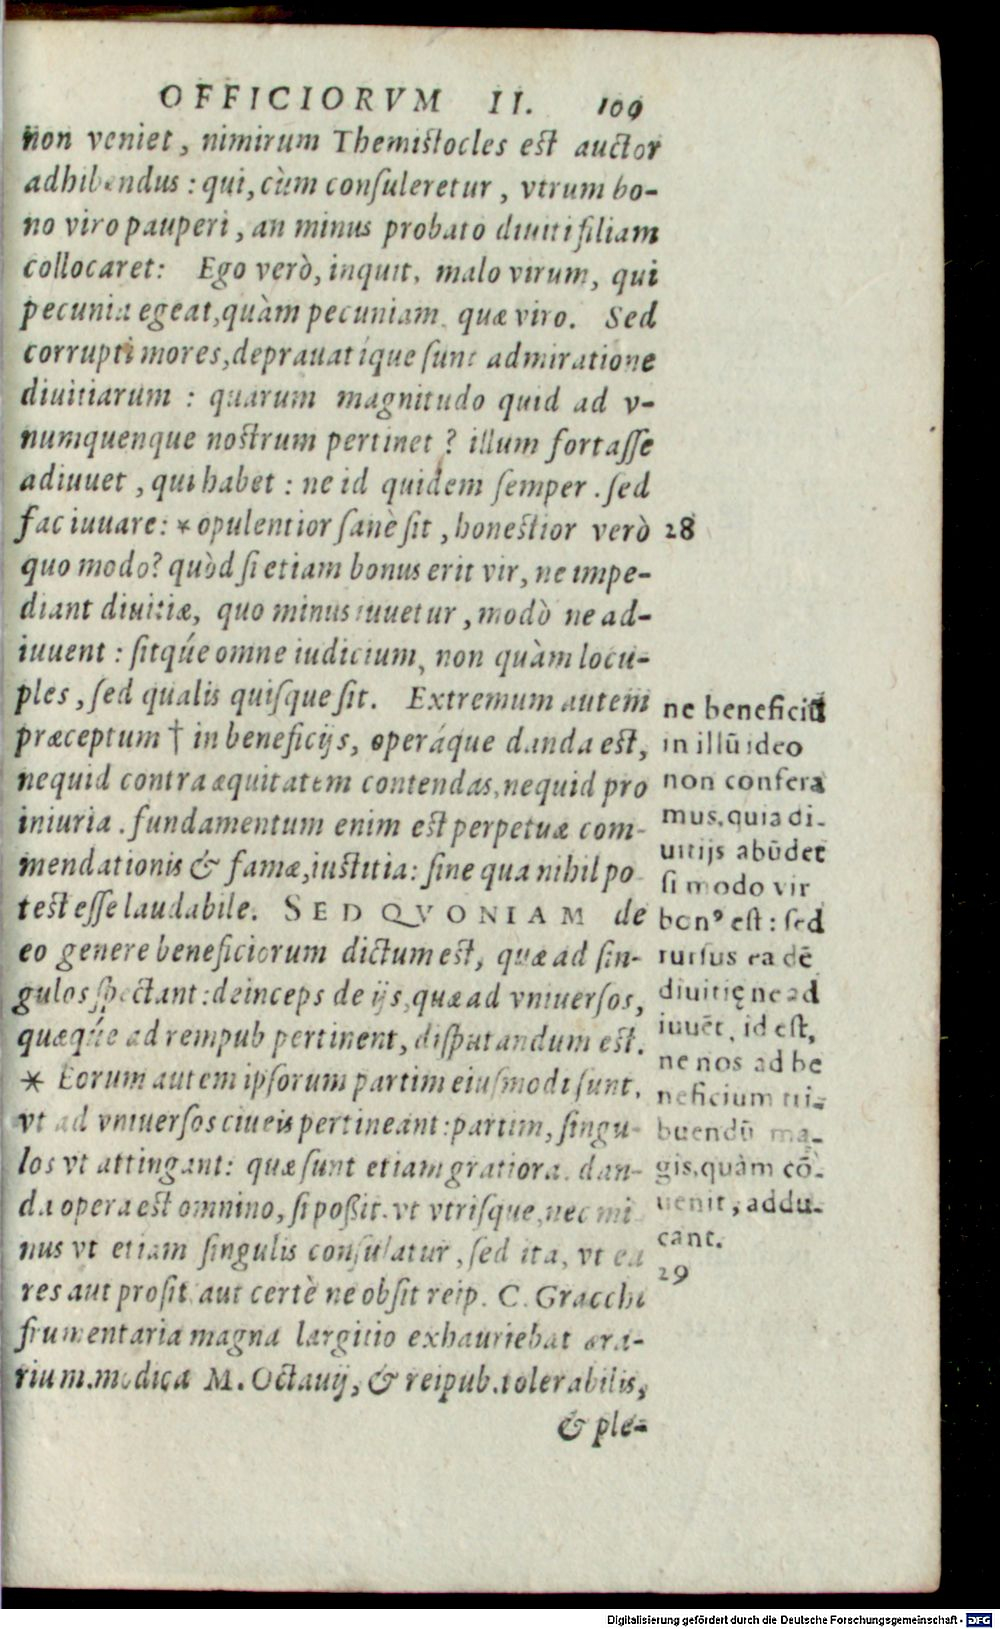 OFFICIORVM II. 109
non veniet, nimirum Themistocles est auctor
adhibendus: qui, cùm consuleretur, vtrum bo-
no viro pauperi, an minus probato diuiti filiam
collocaret: Ego verò, inquit, malo virum, qui
pecunia egeat, quàm pecuniam, quæ viro. Sed
corrupti mores, deprauatíque sunt admiratione
diuitiarum: quarum magnitudo quid ad v-
numquenque nostrum pertinet? illum fortasse
adiuuet, qui habet: ne id quidem semper. sed
fac iuuare: * opulentior sanè sit, honestior verò
quo modo? quòd si etiam bonus erit vir, ne impe-
diant diuitiæ, quo minus iuuetur, modò ne ad-
iuuent: sitq́ue omne iudicium, non quàm locu-
ples, sed qualis quisque sit. Extremum autem
præceptum † in beneficijs, operáque danda est,
nequid contra æquitatem contendas, nequid pro
iniuria. fundamentum enim est perpetuæ com-
mendationis & famæ, iustitia: sine qua nihil po
test esse laudabile. SED QVONIAM de
eo genere beneficiorum dictum est, quæ ad sin-
gulos spectant: deinceps de ijs, quæ ad vniuersos,
quæq́ue ad rempub pertinent, disputandum est.
* Eorum autem ipsorum partim eiusmodi sunt,
vt ad vniuersos ciueis pertineant: partim, singu-
los vt attingant: quæ sunt etiam gratiora. dan-
da opera est omnino, si poßit. vt vtrisque, nec mi
nus vt etiam singulis consulatur, sed ita, vt ea
res aut prosit, aut certè ne obsit reip. C. Gracchi
frumentaria magna largitio exhauriebat æra-
rium. modica M. Octauij, & reipub. tolerabilis,
& ple-
28
ne beneficiũ
in illũ ideo
non confera
mus, quia di-
uitijs abũdet
si modo vir
bonꝰ est: sed
rursus ea dē
diuitię ne ad
iuuēt, id est,
ne nos ad be
neficium tri-
buendũ ma-
gis, quàm cō-
uenit, addu-
cant.
29
Digitalisierung gefördert durch die Deutsche Forschungsgemeinschaft - DFG